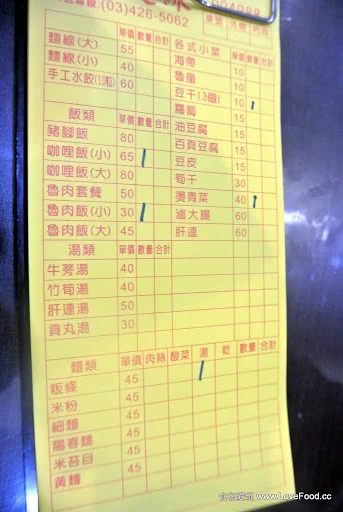 專線:(03)426-5062
桌號 外帶 內用
單價 數量 合計 各式小菜 單價 數量 合計
麵線(大) 55 海帶 10
麵線(小) 40 魯蛋 10
手工水餃(10粒) 60 豆干(3個) 10
蘿蔔 10
飯類 單價 數量 合計 油豆腐 10
豬腳飯 80 百頁豆腐
咖哩飯(小) 65 豆皮
咖哩飯(大) 80 筍干 30
魯肉套餐 50 燙青菜 40
魯肉飯(小) 30 滷大腸 60
魯肉飯(大) 45 肝連 60
湯類 單價 數量 合計
牛蒡湯 40
竹筍湯 40
肝連湯 50
貢丸湯 30
麵類 單價 肉絲 酸菜 湯 乾 數量 合計
粄條 45
米粉 45
細麵 45
陽春麵 45
米苔目 45
黃麵 45
www.LoveFood.cc